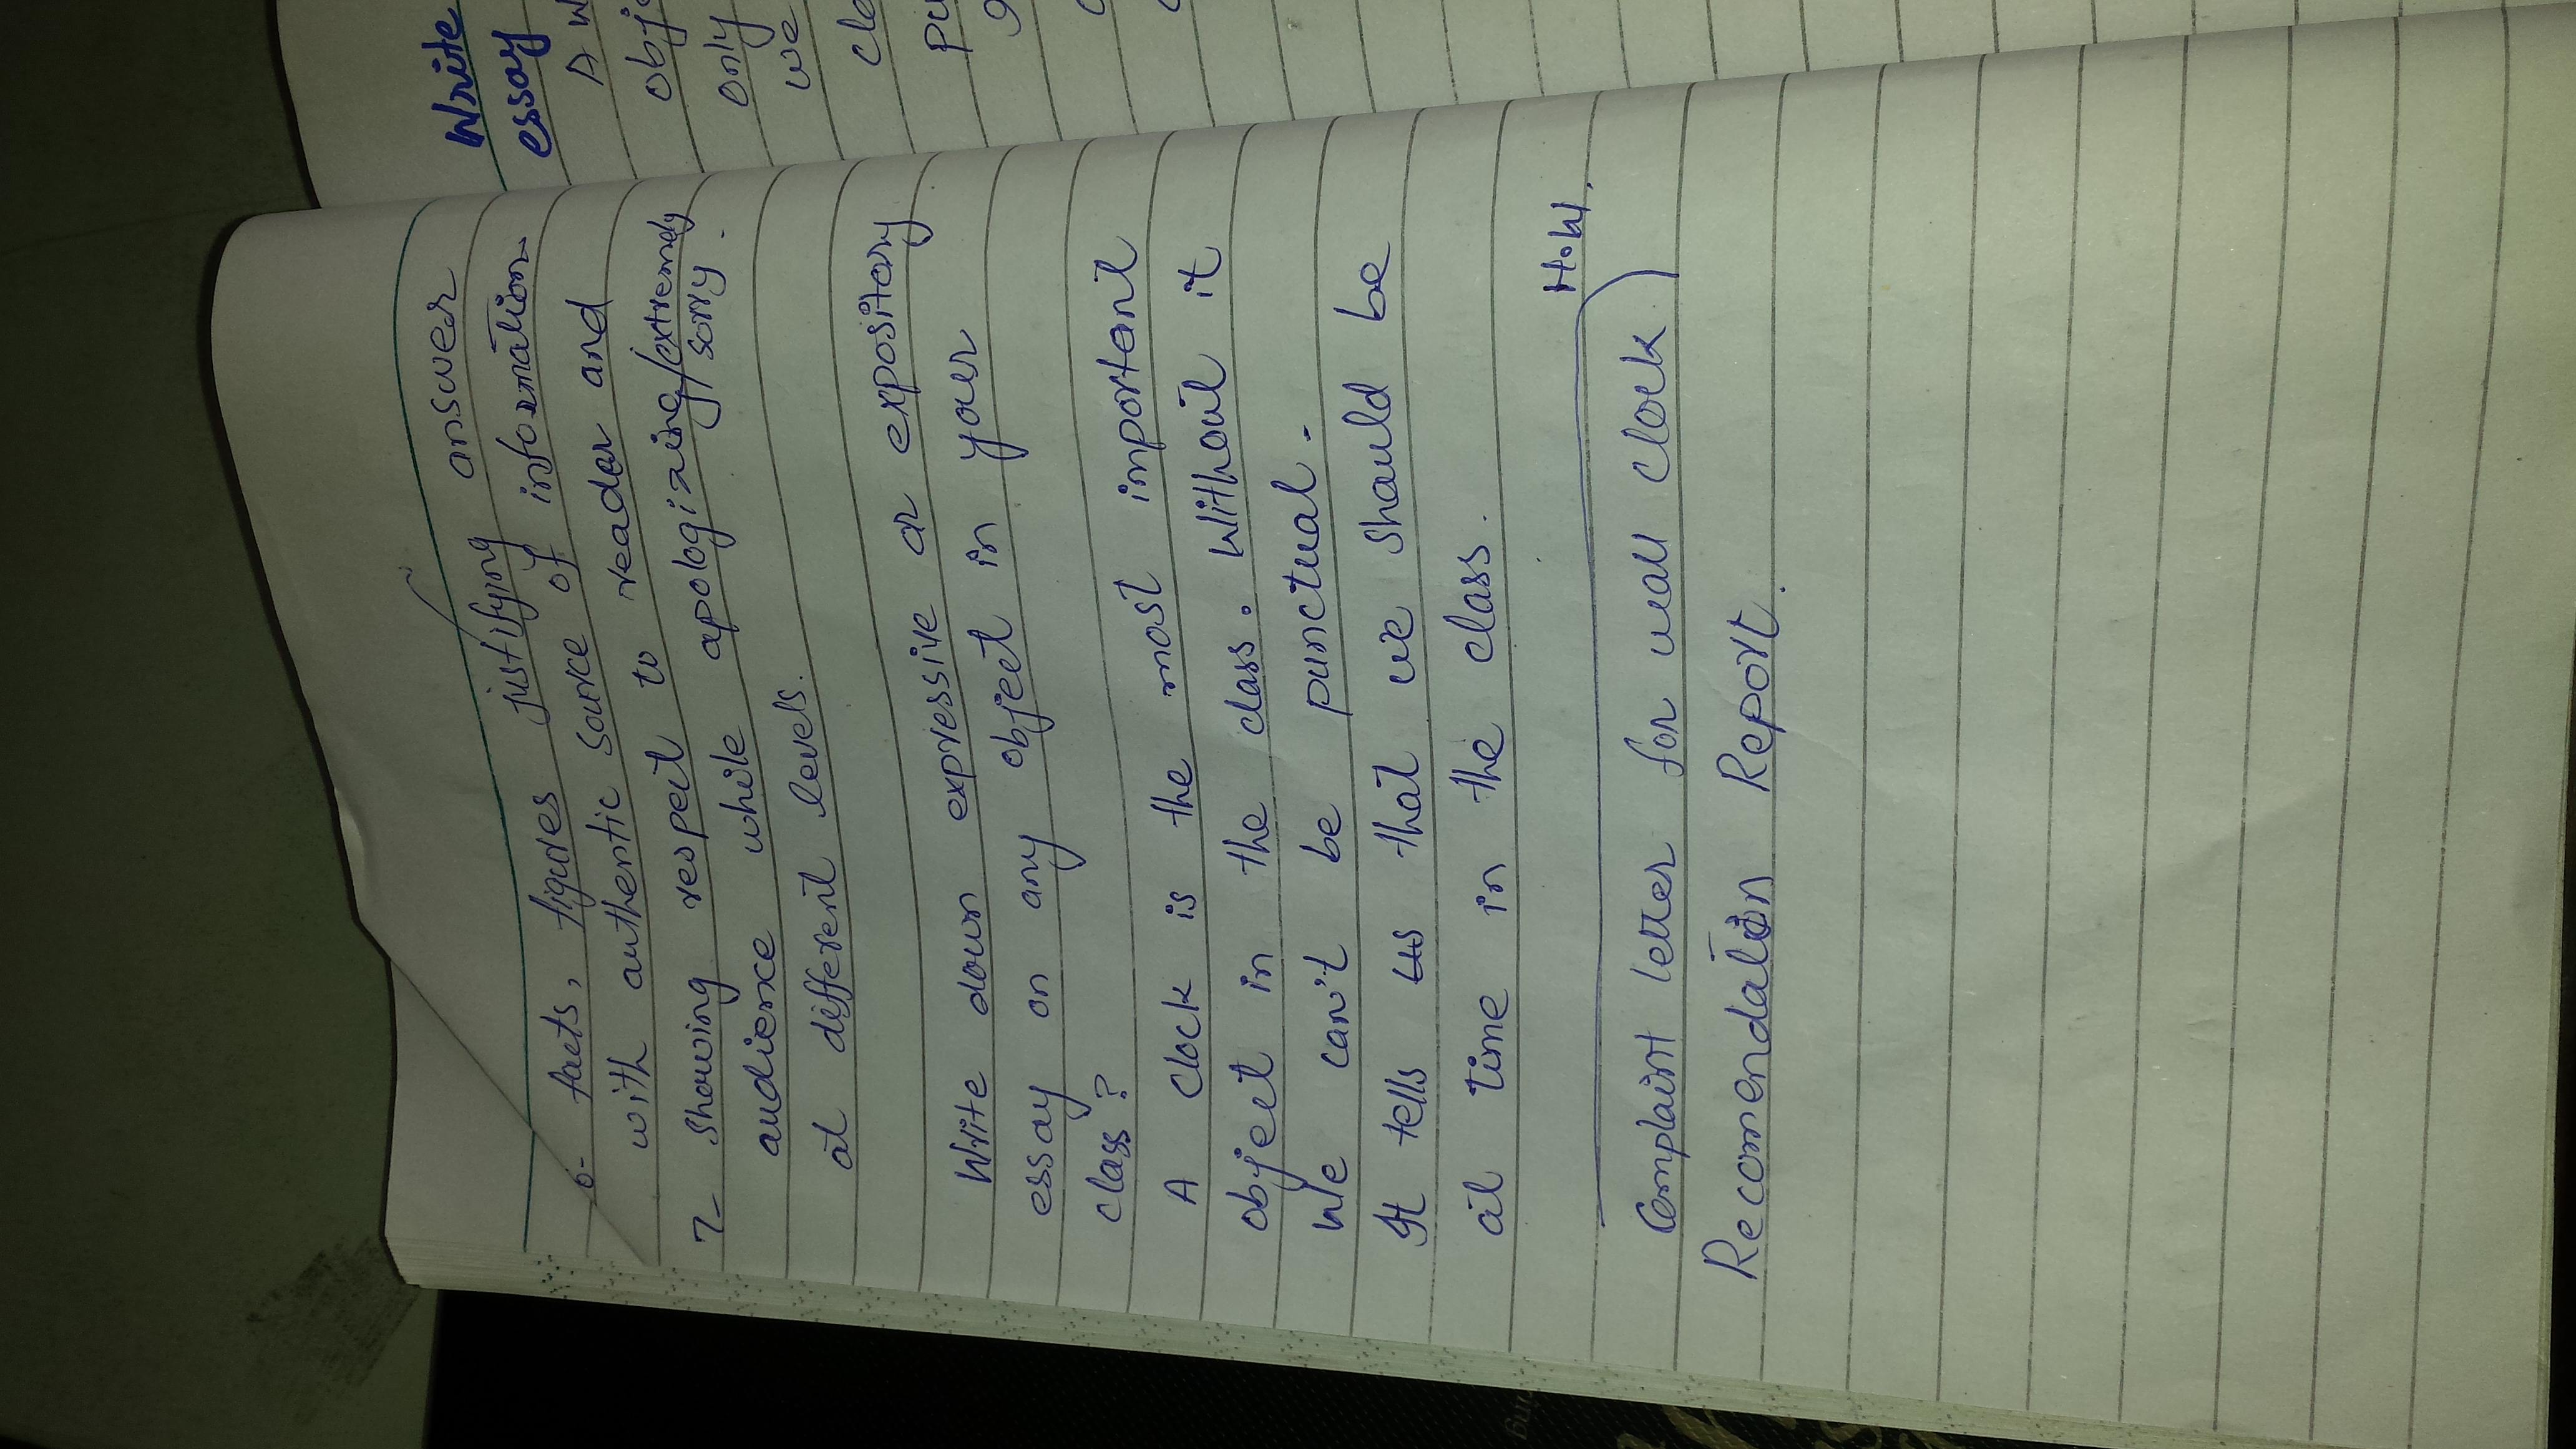 6- facts, figures justifying answer
with authentic source of information
7- Showing respect to reader and
audience while apologizing/extremely
sorry.
at different levels.
Write down expressive or expository
essay on any object in your
class?
A clock is the most important
object in the class. Without it
We can't be punctual.
It tells us that we should be
at time in the class.
H.W.
Complaint letter for wall clock
Recomendation Report.
Write
essay
A
only
we